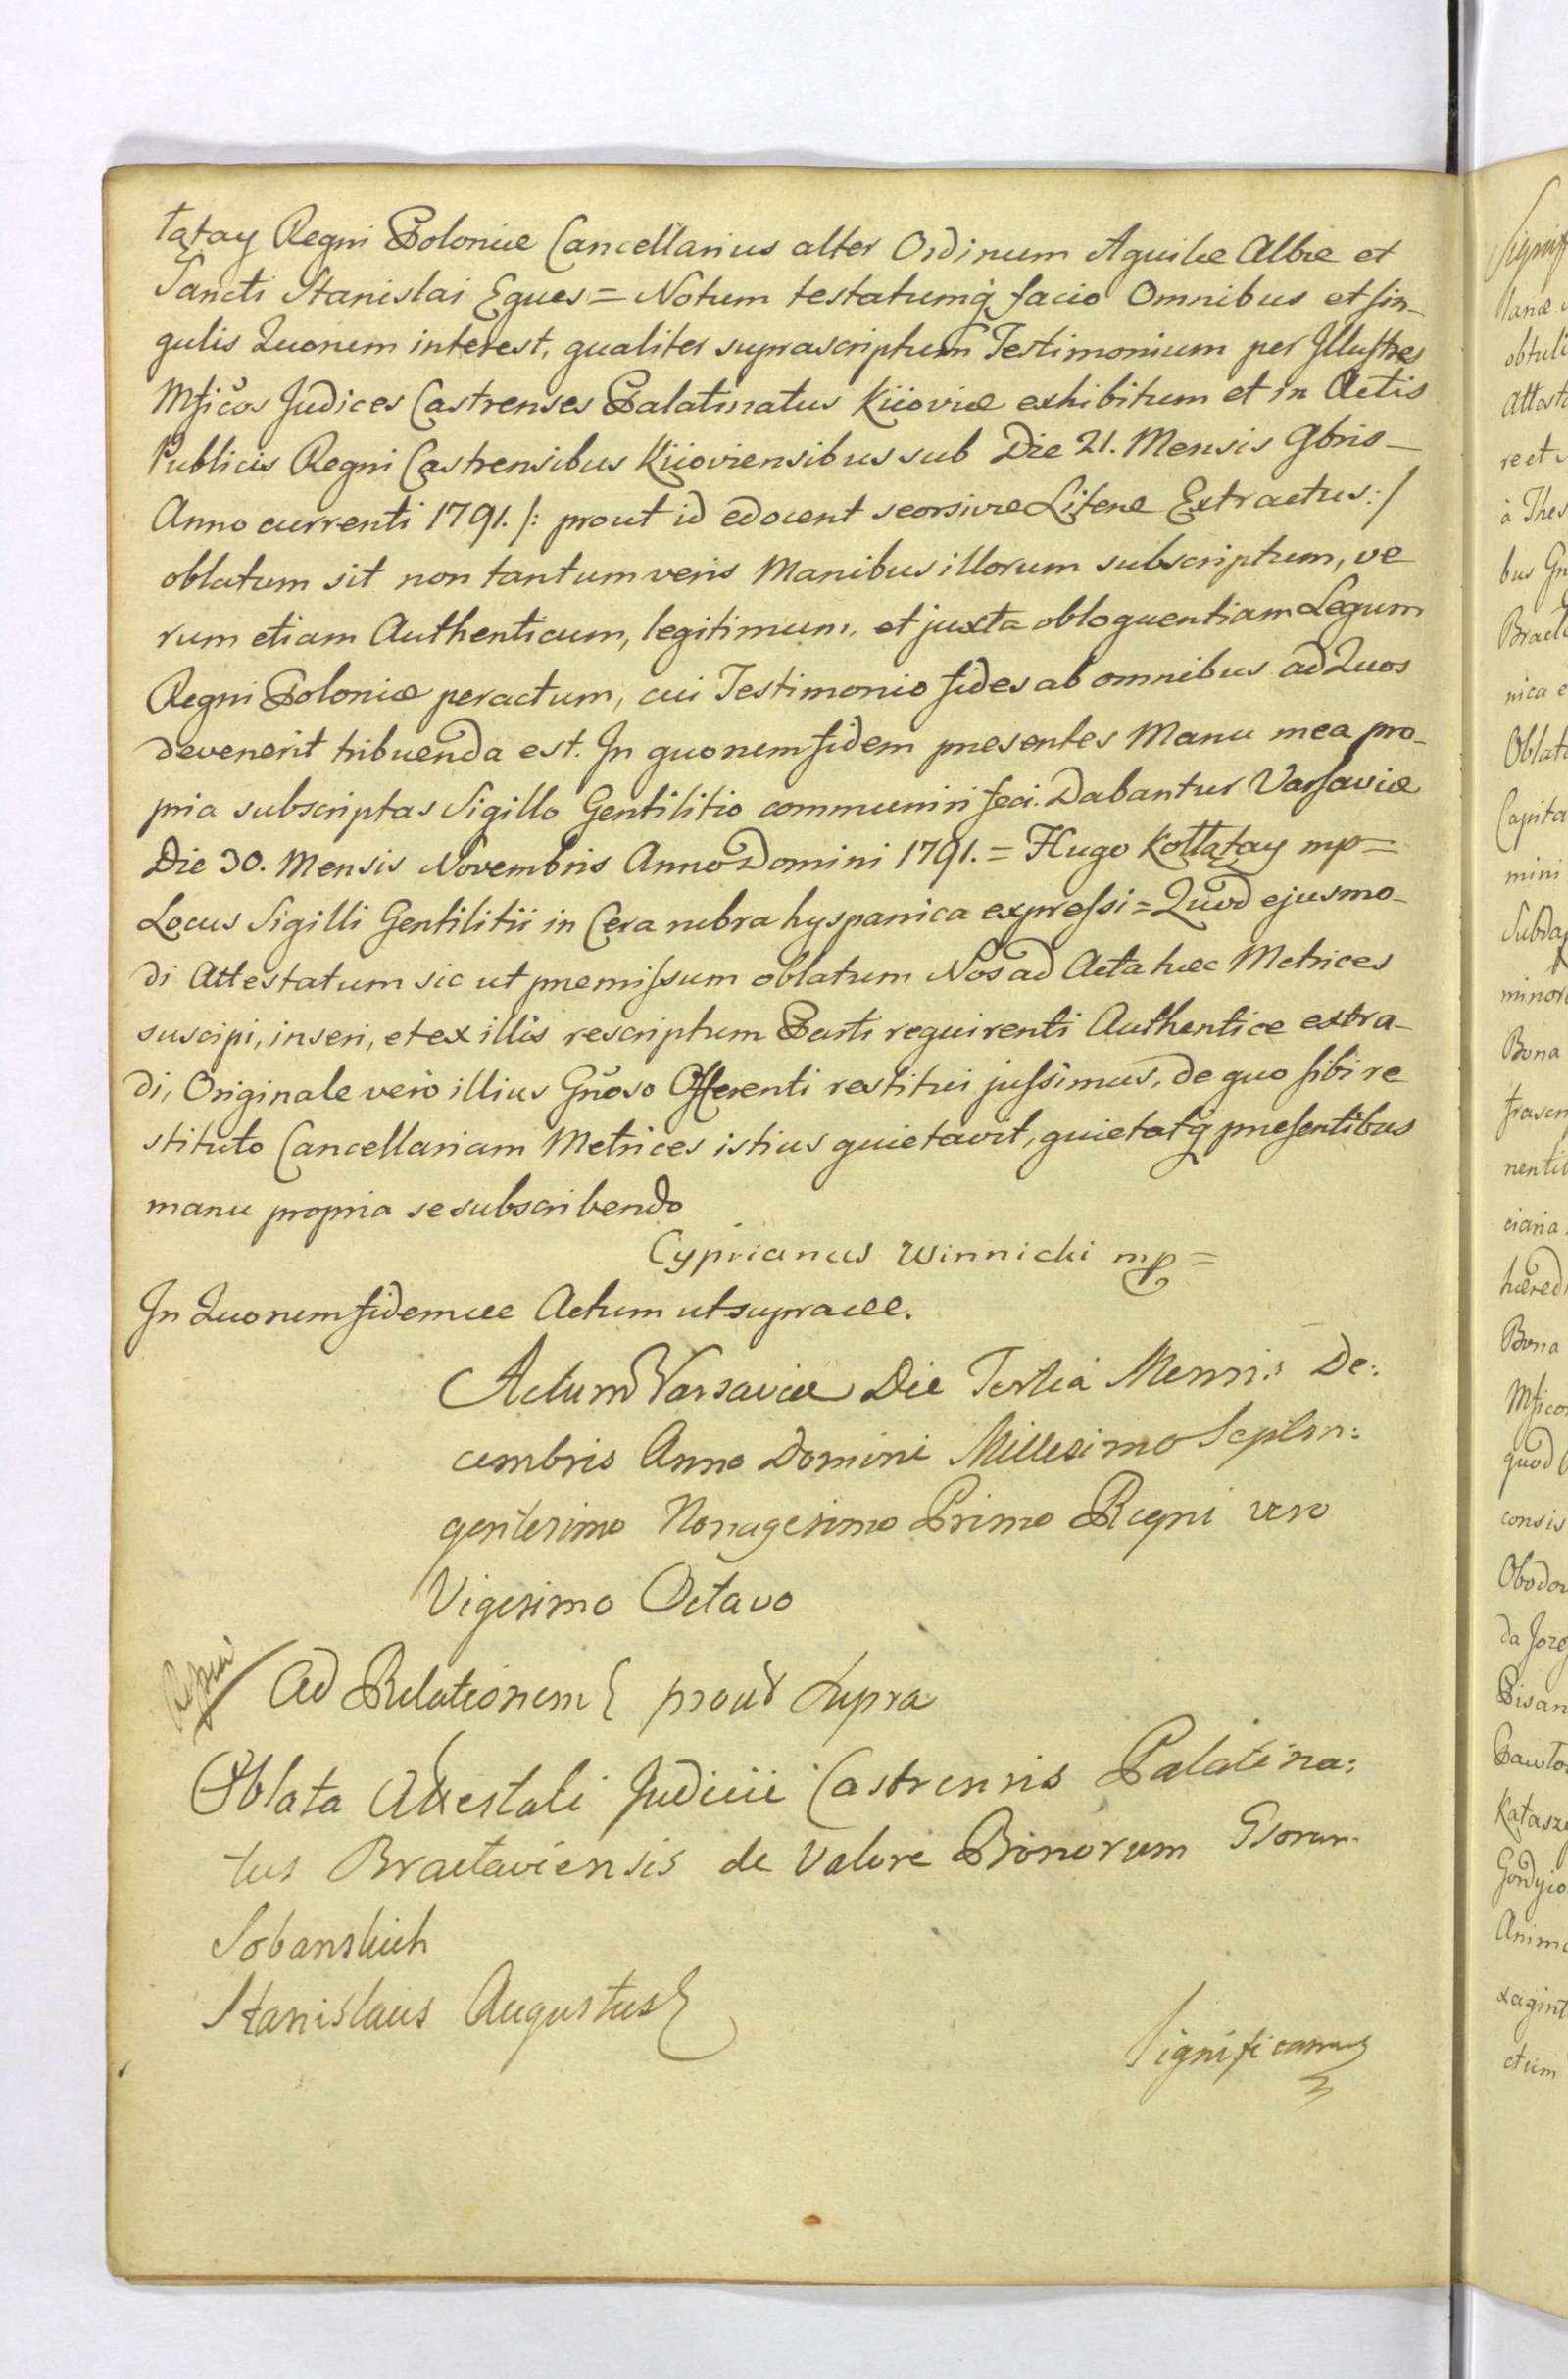 łątay Regni Poloniæ Cancellarius alter Ordinum Aquilæ Albæ et
Sancti Stanislai Eques = Notum testatumq̃ facio Omnibus et sin-
gulis Quorum interest, qualiter suprascriptum Testimonium per Illustres
Mficos Judices Castrenses Palatinatus Kiioviæ exhibitum et in Actis
Publicis Regni Castrensibus Kiioviensibus sub Die 21. Mensis 9bris
Anno currenti 1791. /: prout id edocent seorsivæ Literæ Extractus :/
oblatum sit non tantum veris Manibus illorum subscriptum, ve
rum etiam Authenticum, legitimum, et juxta obloquentiam Legum
Regni Poloniæ peractum, cui Testimonio fides ab omnibus ad Quos
devenerit tribuenda est. In quorum fidem præsentes Manu mea pro-
pria subscriptas Sigillo Gentilitio communiri feci. Dabantur Varsaviæ
Die 30. Mensis Novembris Anno Domini 1791. = Hugo Kołłątay mp =
Locus Sigilli Gentilitii in Cera rubra hyspanica expressi = Quod ejusmo-
di Attestatum sic ut præmissum oblatum Nos ad Acta hæc Metrices
suscipi, inseri, et ex illis rescriptum Parti requirenti Authentice extra-
di, Originale vero illius Gñoso Offerenti restitui jussimus, de quo sibi re
stituto Cancellariam Metrices istius quietavit, quietatq̃ præsentibus
manu propria se subscribendo
Cyprianus Winnicki mp =
In Quorum fidem ... Actum ut supra ...
Actum Varsaviæ Die Tertia Mensis De:
cembris Anno Domini Millesimo Septin:
gentesimo Nonagesimo Primo Regni vero
Vigesimo Octavo
Ad Relationem prout Supra
Oblata Attestati Judicii Castrensis Palatina:
tus Braclaviensis de Valore Bonorum Gsorum
Sobanskich
Stanislaus Augustus
Significamus